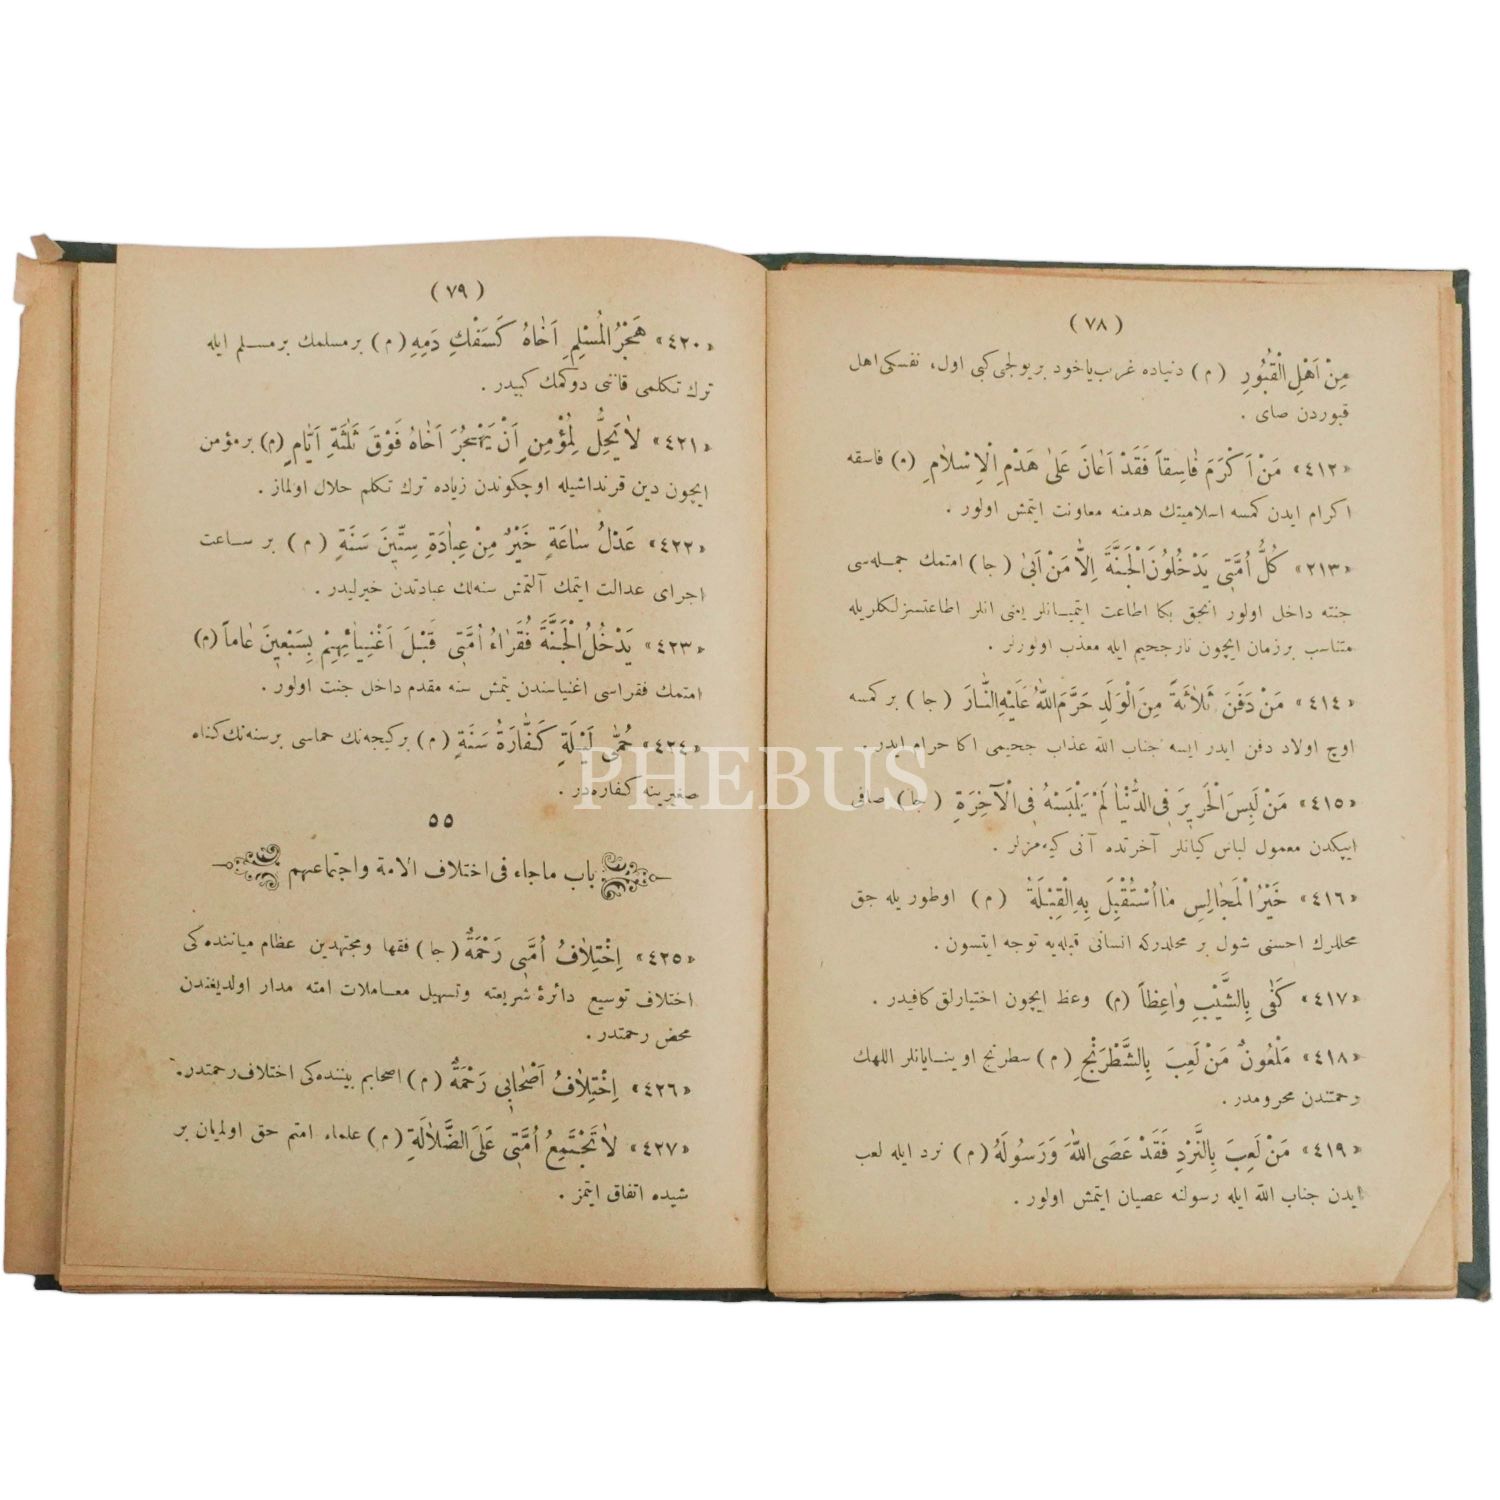 ( ٧٨ )
مِنْ اَهْلِ الْقُبُورِ ( م ) دنياده غريب ياخود بر يولجى كبى اول، نفسكى اهل
قبوردن صاى .
«٤١٢» مَنْ اَكْرَمَ فَاسِقاً فَقَدْ اَعَانَ عَلٰى هَدْمِ الْاِسْلَامِ (م) فاسقه
اكرام ايدن كمسه اسلاميتك هدمنه معاونت ايتمش اولور .
«٢١٣» كُلُّ اُمَّتِى يَدْخُلُونَ الْجَنَّةَ اِلَّا مَنْ اَبٰى ( جا ) امتمك جمله‌سى
جنته داخل اولور انجق بكا اطاعت ايتميانلر يعنى انلر اطاعتسزلكلريله
متناسب بر زمان ايچون نار جحيم ايله معذب اولورلر .
«٤١٤» مَنْ دَفَنَ ثَلَاثَةً مِنَ الْوَلَدِ حَرَّمَ اللّٰهُ عَلَيْهِ النَّارَ ( جا ) بر كمسه
اوچ اولاد دفن ايدر ايسه جناب اللّٰه عذاب جحيمى اكا حرام ايدر .
«٤١٥» مَنْ لَبِسَ الْحَرِيرَ فِى الدُّنْيَا لَمْ يَلْبَسْهُ فِى الْآخِرَةِ ( جا ) صافى
ايپكدن معمول لباس كيانلر آخرتده آنى كيه‌مزلر .
«٤١٦» خَيْرُ الْمَجَالِسِ مَا اُسْتُقْبِلَ بِهِ الْقِبْلَةُ ( م ) اوطور يله جق
محللرك احسنى شول بر محلدركه انسانى قبله‌يه توجه ايتسون .
«٤١٧» كَفٰى بِالشَّيْبِ وَاعِظاً (م) وعظ ايچون اختيارلق كافيدر .
«٤١٨» مَلْعُونٌ مَنْ لَعِبَ بِالشَّطْرَنْجِ ( م ) سطرنج اوينايانلر اللهك
رحمتندن محرومدر .
«٤١٩» مَنْ لَعِبَ بِالنَّرْدِ فَقَدْ عَصَى اللّٰهَ وَرَسُولَهُ ( م ) نرد ايله لعب
ايدن جناب اللّٰه ايله رسولنه عصيان ايتمش اولور .
( ٧٩ )
«٤٢٠» هَجْرُ الْمُسْلِمِ اَخَاهُ كَسَفْكِ دَمِهِ ( م ) بر مسلمك بر مسلم ايله
ترك تكلمى قاننى دوكمك كبيدر .
«٤٢١» لَا يَحِلُّ لِمُؤْمِنٍ اَنْ يَهْجُرَ اَخَاهُ فَوْقَ ثَلٰثَةِ اَيَّامٍ (م) بر مؤمن
ايچون دين قرنداشيله اوچ كوندن زياده ترك تكلم حلال اولماز .
«٤٢٢» عَدْلُ سَاعَةٍ خَيْرٌ مِنْ عِبَادَةِ سِتِّينَ سَنَةٍ ( م ) بر ساعت
اجراى عدالت ايتمك آلتمش سنه‌لك عبادتدن خيرليدر .
«٤٢٣» يَدْخُلُ الْجَنَّةَ فُقَرَاءُ اُمَّتِى قَبْلَ اَغْنِيَائِهِمْ بِسَبْعِينَ عَاماً (م)
امتمك فقراسى اغنياسندن يتمش سنه مقدم داخل جنت اولور .
«٤٢٤» حُمّٰى لَيْلَةٍ كَفَّارَةُ سَنَةٍ ( م ) بر كيجه‌نك حماسى بر سنه‌نك كناه
صغيرينه كفاره‌در .
٥٥
باب ماجاء فى اختلاف الامة واجتماعهم
«٤٢٥» اِخْتِلَافُ اُمَّتِى رَحْمَةٌ ( جا ) فقها ومجتهدين عظام مياننده كى
اختلاف توسيع دائرۀ شريعته وتسهيل معاملات امته مدار اولديغندن
محض رحمتدر .
«٤٢٦» اِخْتِلَافُ اَصْحَابِى رَحْمَةٌ ( م ) اصحابم بيننده كى اختلاف رحمتدر .
«٤٢٧» لَا تَجْتَمِعُ اُمَّتِى عَلَى الضَّلَالَةِ ( م ) علماء امتم حق اولميان بر
شيده اتفاق ايتمز .
PHEBUS